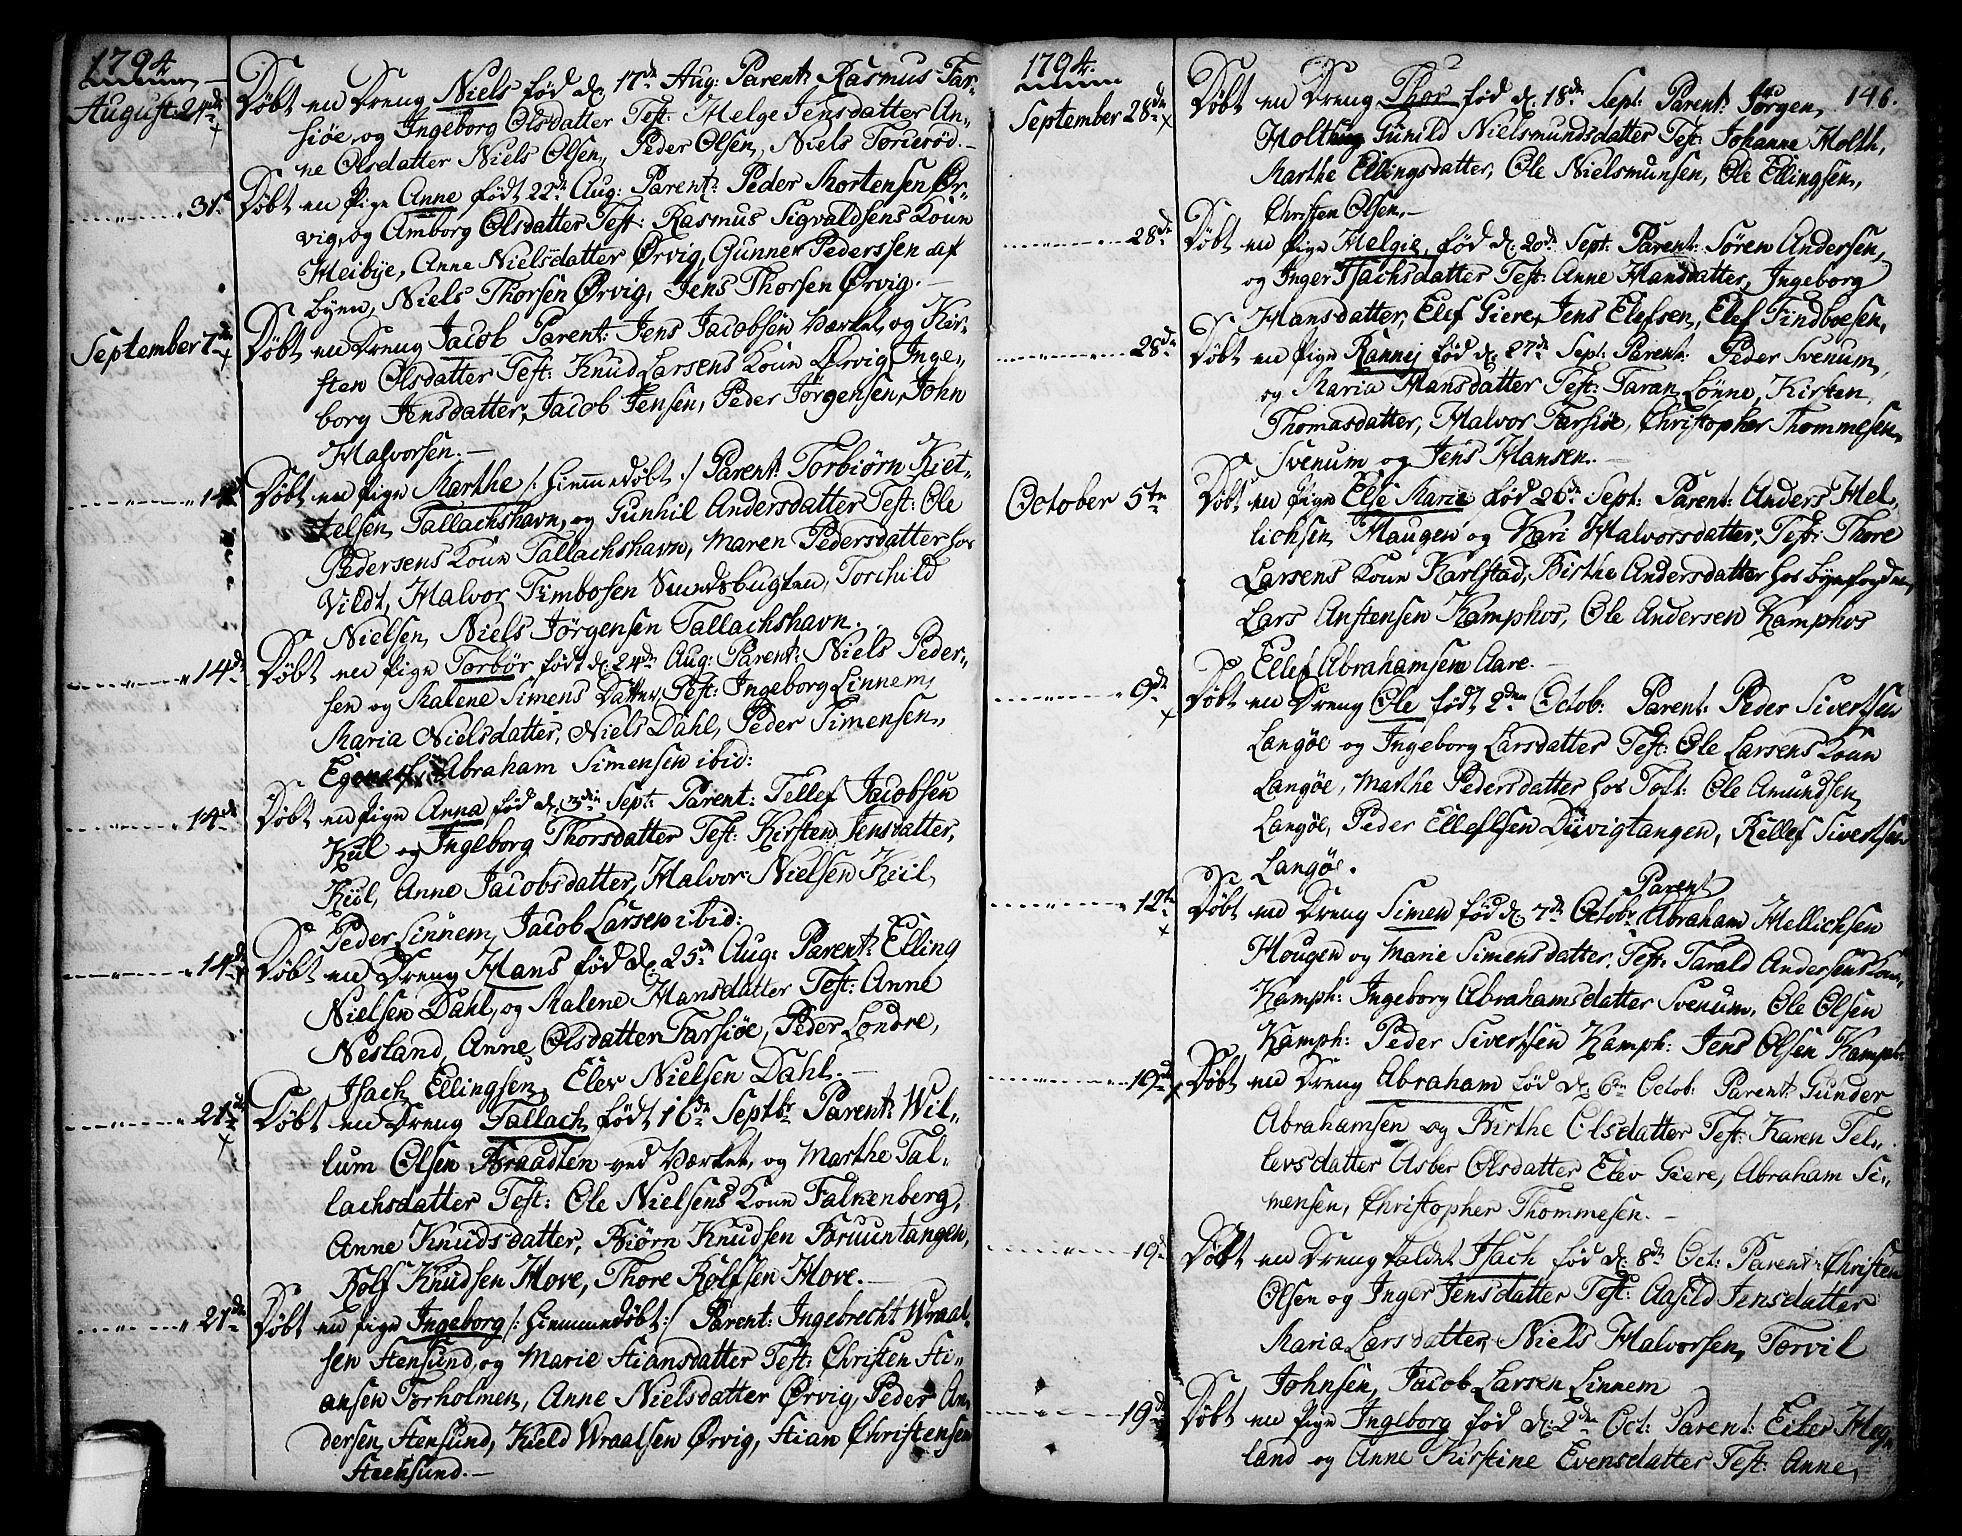 1794
August: 24de
Døbt en Dreng Niels fød d. 17de Aug: Parent: Rasmus Far-
siøe, og Ingeborg Olsdatter Test: Helge Jensdatter An-
ne Olsdatter Niels Olsen, Peder Olsen, Niels Torierød.-
31te
Døbt en Pige Anne født 22de Aug: Parent: Peder Mortensen Ør-
vig, og Amborg Olsdatter Test: Rasmus Sigvaldsens Konn
Heibÿe, Anne Nielsdatter Ørvig, Gunner Pederssen af
byen, Niels Thorsen Ørvig, Jens Thorsen Ørvig.-
September 7de
Døbt en Dreng Jacob Parent: Jens Jacobsen Værket, og Kir-
sten Olsdatter Test: Knud Larsens Konn Ørvig, Inge-
borg Jensdatter, Jacob Jensen, Peder Jørgensen, John
Halvorsen.-
14de
Døbt en Pige Marthe /: Hiemmedøbt :/ Parent: Torbiørn Kiet-
telsen, Tallachshavn, og Gunhil Andersdatter Test: Ole
Pedersens Konn Tallachshavn, Maren Pedersdatter hos
Vildt, Halvor Timbosen Sundsbugten, Torchild
Nielsen, Niels Jørgensen Tallachshavn.
14de
Døbt en Pige Torbør født d. 24de Aug: Parent: Niels Peder-
sen og Malene Simens Datter, Test: Ingeborg Linnem,
Maria Nielsdatter, Niels Dahl, Peder Simensen,
Abraham Simensen ibid:
14de
Døbt en Pige Anna fød d. 3die Sept: Parent: Tellef Jacobsen
Kiil og Ingeborg Thorsdatter Test: Kirsten Jensdatter,
Kiil, Anne Jacobsdatter, Halvor Nielsen Kiil,
Peder Linnem, Jacob Larsen ibid:
14de
Døbt en Dreng Hans fød d. 25de Aug: Parent: Elling
Nielsen Dahl, og Malene Hansdatter Test: Anne
Nesland, Anne Olsdatter Farsiøe, Peder Londre,
Isach Ellingsen, Elev Nielsen Dahl.-
21de
Døbt en Dreng Tallach, født 16de Septbr Parent: Wil-
lum Olsen Braadten ved Værket, og Marthe Tal-
lachsdatter Test: Ole Nielsens Konn Falkenberg,
Anne Knudsdatter, Biørn Knudsen Bruuntangen,
Rolf Knudsen Hove, Thore Rolfsen Hove.-
21de
Døbt en Pige Ingeborg /: Hiemmedøbt :/ Parent: Ingebrecht Wraal-
sen Stensund, og Marie Stiansdatter Test: Christen Sti-
ansen Torholmen, Anne Nielsdatter Ørvig, Peder An-
dersen Stensund, Kield Wraalsen Ørvig, Stian Christensen
Steensund.-
1794.
146.
September 28de
Døbt en Dreng Thor fød d. 18de Sept: Parent: Jørgen,
Holt og Gunild Nielsmundsdatter Test: Johanne Holth,
Marthe Ellingsdatter, Ole Nielsmunsen, Ole Ellingsen,
Christen Olsen.-
28de
Døbt en Pige Helgie, fød d. 20de Sept: Parent: Søren Andersen,
og Inger Isachsdatter Test: Anne Hansdatter, Ingeborg
Hansdatter, Elef Giere, Jens Elefsen, Elef Findboesen,
28de
Døbt en Pige Rannej fød d. 27de Sept: Parent: Peder Svenum,
og Maria Hansdatter Test: Taran Lønne, Kirsten,
Thomasdatter, Halvor Farsiøe, Christopher Thommesen
Svenum og Jens Hansen.-
October 5te
Døbt en Pige Else Marie fød 26de Sept: Parent: Anders Mel-
lichsen, Haugen og Kari Halvorsdatter, Test: Thore
Larsens Konn Karlstad, Birthe Andersdatter hos Byefogden,
Lars Anstensen Kamphos, Ole Andersen Kamphos
Ellef Abrahamsen Aare.-
9de
Døbt en Dreng Ole født 2den Octob: Parent: Peder Sivertsen
Langøe og Ingeborg Larsdatter Test: Ole Larsens Konn
Langøe, Marthe Pedersdatter hos Tolt: Ole Amundsen,
Langøe, Peder Elleflsen Düvigtangen, Rellef Sivertsen
Langøe.
12te
Døbt en Dreng Simen fød d. 7de Octobr Parent Abraham Mellichsen
Hougen og Marie Simensdatter, Test: Tarald Andersens Konn,
Kamph: Ingeborg Abrahamsdatter Svenum, Ole Olsen
Kamph: Peder Sivertsen Kamph: Jens Olsen Kamph:
19de
Døbt en Dreng Abraham fød d. 6te Octob: Parent: Gunder
Abrahamsen og Birthe Olsdatter Test: Karen Tel-
levsdatter Asber Olsdatter Elev Giere, Abraham Si-
mensen, Christopher Thommesen.-
19de
Døbt en Dreng kaldet Isach fød d. 8de Oct: Parent: Christen
Olsen og Inger Jensdatter Test: Aasild Jensdatter
Maria Larsdatter, Niels Halvorsen, Torvil
Johnsen, Jacob Larsen Linnem
19de
Døbt en Pige Ingeborg fød d. 2den Oct: Parent: Eiler Heg-
land og Anne Kirstine Evensdatter Test: Anne,